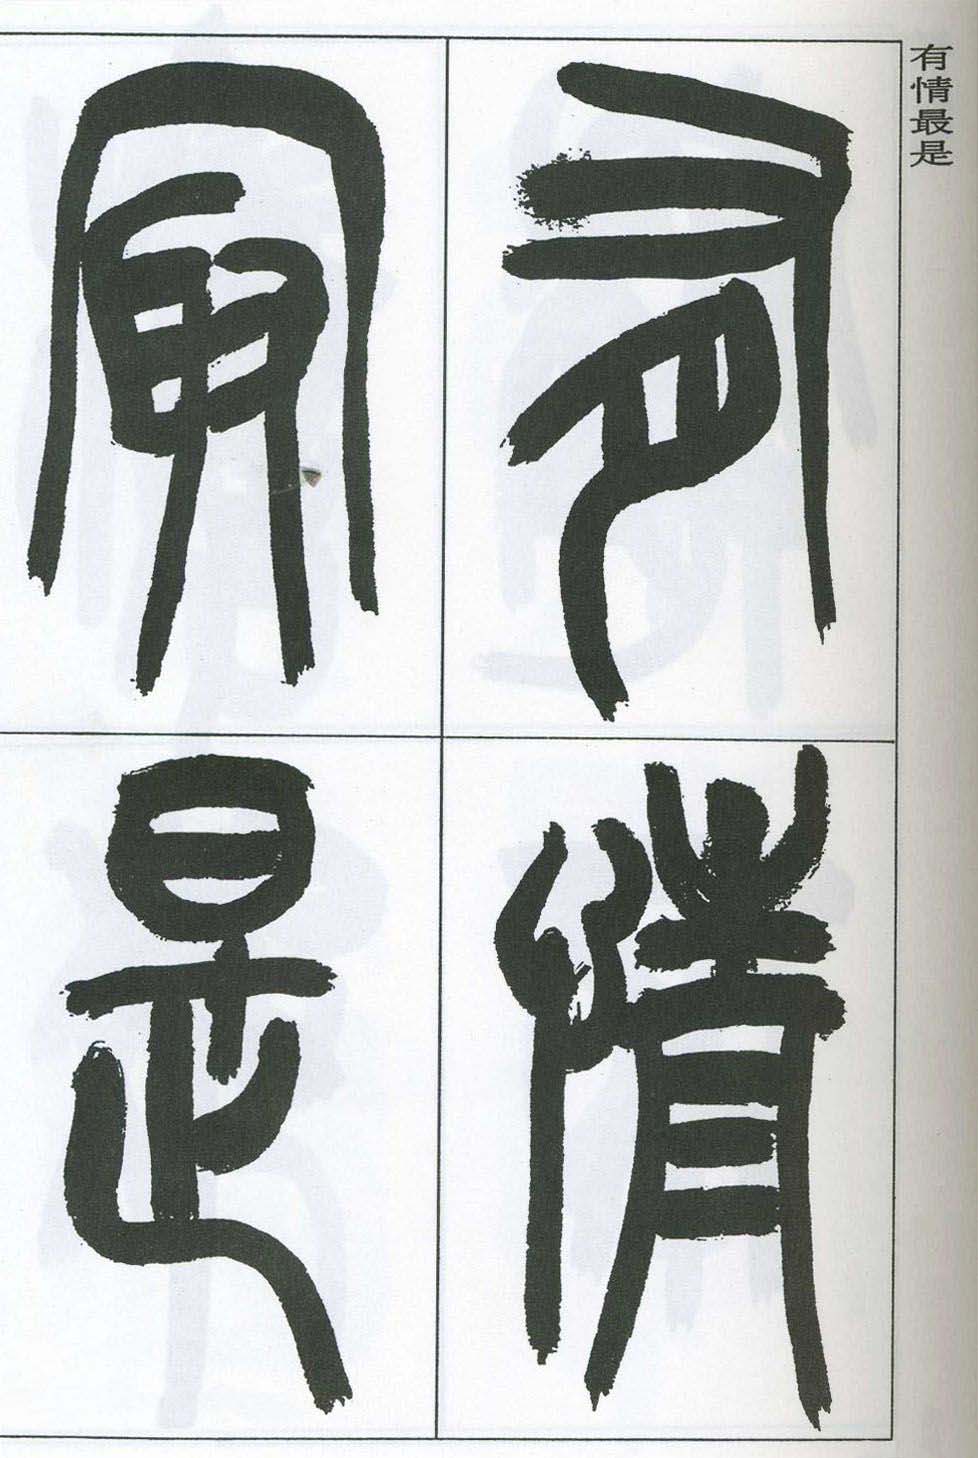 有情最是
有情
最是